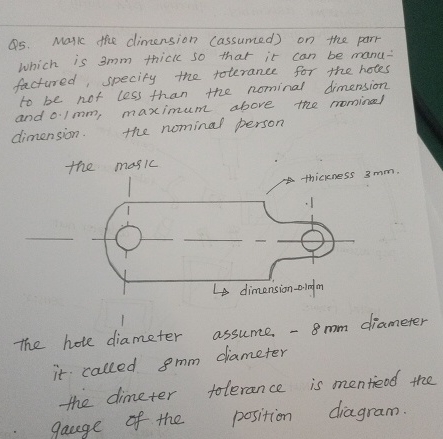 Q5. Mark the dimension (assumed) on the part
which is 3mm thick so that it can be manu-
factured, specify the tolerance for the holes
to be not less than the nominal dimension
and 0.1mm, maximum above the nominal
dimension. the nominal person
the mark
thickness 3mm.
dimension-0.1mm
the hole diameter assume - 8mm diameter
it called 8mm diameter
the dimeter tolerance is mentieod the
gauge of the position diagram.